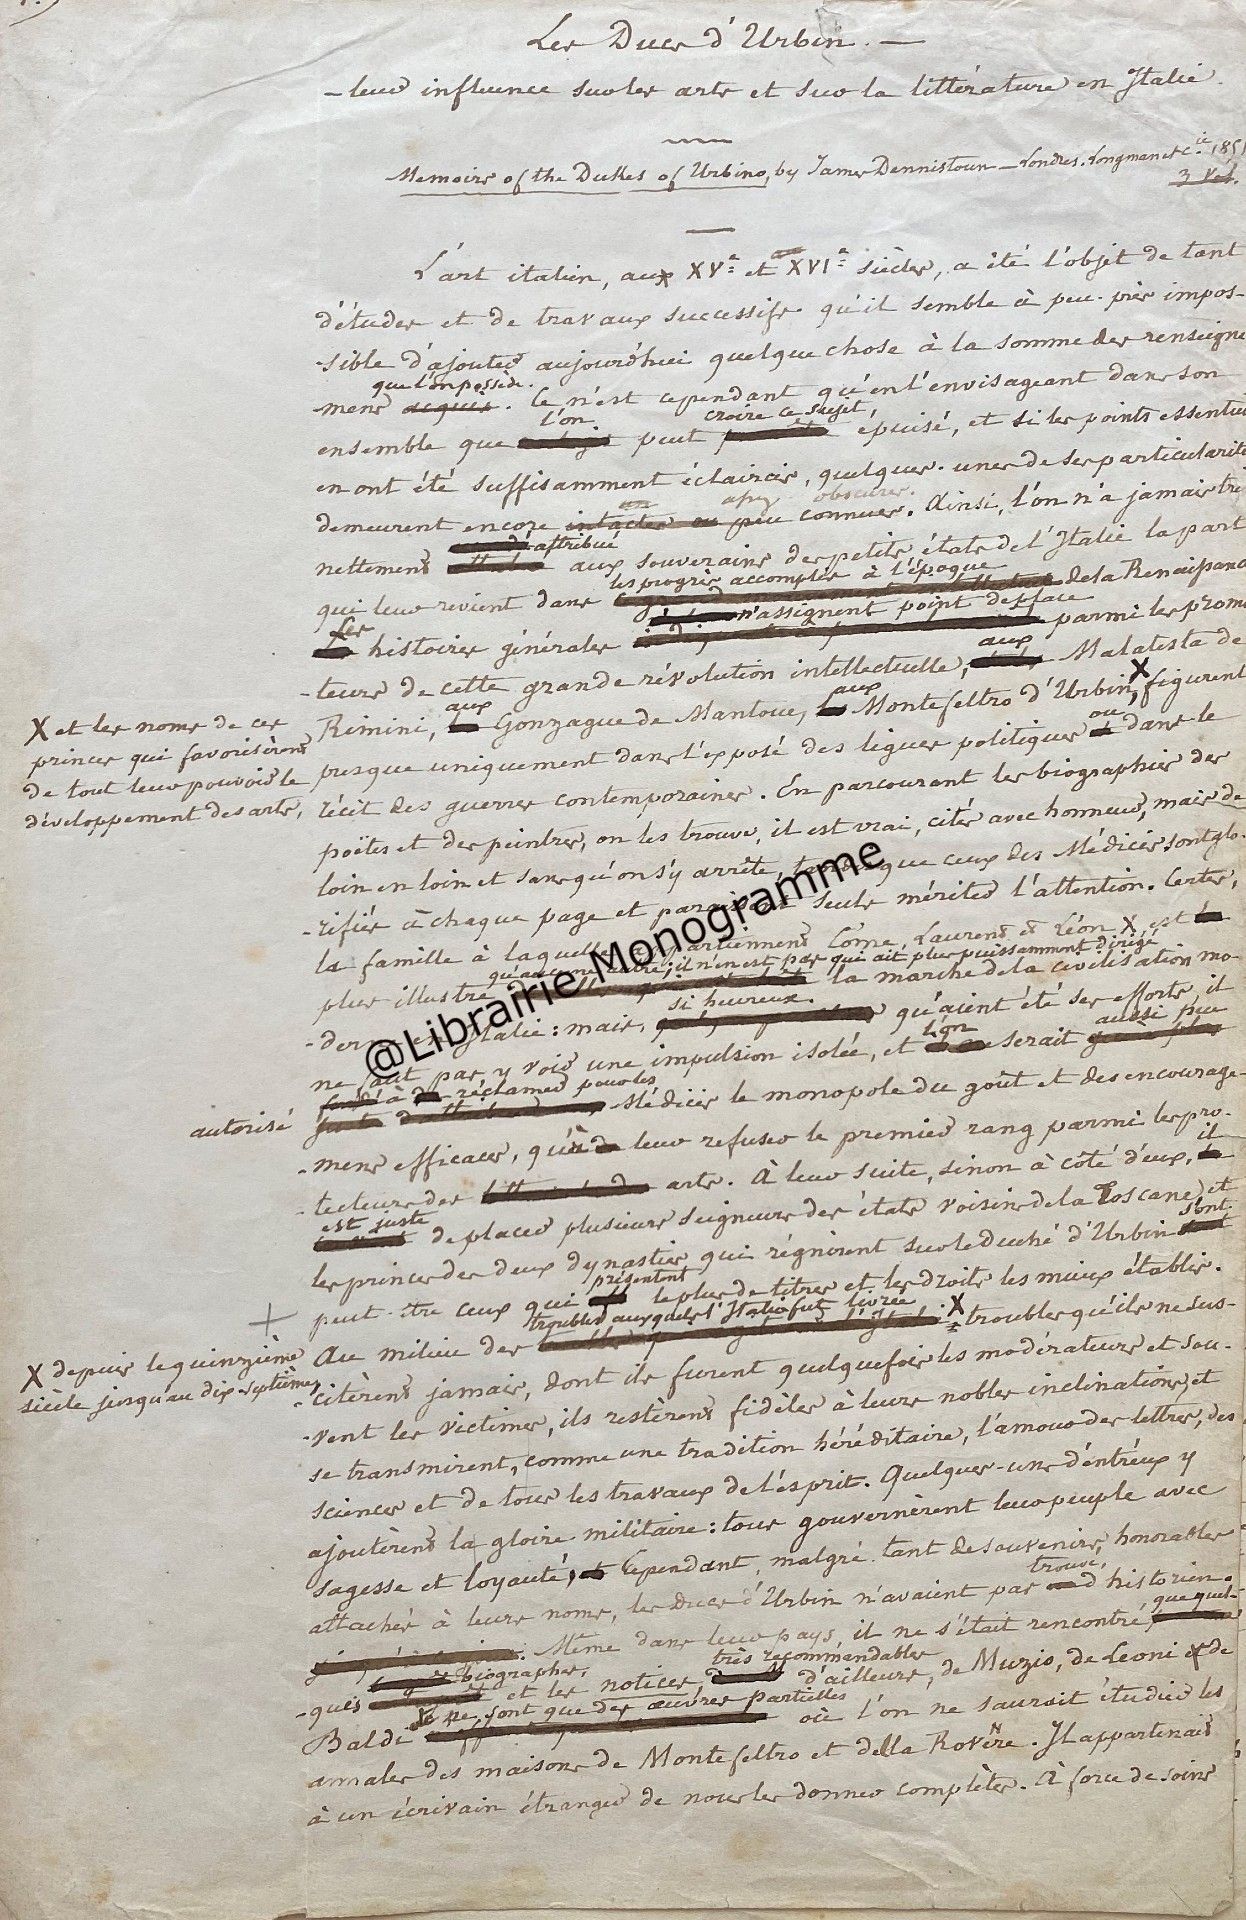 Les Ducs d'Urbin. —
— leur influence sur les arts et sur la littérature en Italie.
Memoirs of the Dukes of Urbino, by James Dennistoun — Londres. Longman et Cie. 1851
3 Vol.
L'art italien, aux XVe et XVIe siècles, a été l'objet de tant
d'études et de travaux successifs qu'il semble à peu-près impos-
-sible d'ajouter aujourd'hui quelque chose à la somme des renseigne
que l'on possède.
mens acquis. Ce n'est cependant qu'en l'envisageant dans son
l'on croire ce sujet,
ensemble que peut épuisé, et si les points essentiels
en ont été suffisamment éclaircis, quelques-unes de ses particularités
assez obscures.
demeurent encore intactes ou peu connues. Ainsi, l'on n'a jamais
attribué
nettement aux souverains des petits états de l'Italie la part
les progrès accomplis à l'époque
qui leur revient dans de la Renaissance
Les n'assignent point de place
histoires générales parmi les promo
aux
-teurs de cette grande révolution intellectuelle, Malatesta de
aux aux X
Rimini, Gonzague de Mantoue, Montefeltro d'Urbin, figurent
X et les noms de ces
princes qui favorisèrent
de tout leur pouvoir le
développement des arts,
ou
presque uniquement dans l'exposé des ligues politiques dans le
récit des guerres contemporaines. En parcourant les biographies des
poëtes et des peintres, on les trouve, il est vrai, cités avec honneur, mais de
loin en loin et sans qu'on s'y arrête, tandis que ceux des Médicis sont glo-
-rifiés à chaque page et paraissent seuls mériter l'attention. Certes,
la famille à laquelle appartiennent Côme, Laurent et Léon X, est
qu'aucune autre; il n'en est pas qui ait plus puissamment dirigé
plus illustre la marche de la civilisation mo-
si heureux
-derne en Italie: mais, qu'aient été ses efforts, il
l'on aussi peu
ne faut pas y voir une impulsion isolée, et serait
à réclamer pour les
autorisé Médicis le monopole du goût et des encourage-
-mens efficaces, qu'à leur refuser le premier rang parmi les pro-
il
-tecteurs des arts. À leur suite, sinon à côté d'eux,
est juste
de placer plusieurs seigneurs des états voisins de la Toscane, et
sont
les princes des deux dynasties qui régnèrent sur le duché d'Urbin
présentent
peut-être ceux qui le plus de titres et les droits les mieux établis.
troubles auxquels l'Italie fut livrée X
Au milieu des troubles qu'ils ne sus-
X depuis le quinzième
siècle jusqu'au dix-septième,
-citèrent jamais, dont ils furent quelquefois les modérateurs et sou-
-vent les victimes, ils restèrent fidèles à leurs nobles inclinations, et
se transmirent, comme une tradition héréditaire, l'amour des lettres, des
sciences et de tous les travaux de l'esprit. Quelques-uns d'entr'eux y
ajoutèrent la gloire militaire: tous gouvernèrent leur peuple avec
sagesse et loyauté, Cependant, malgré tant de souvenirs honorables
trouvé,
attachés à leurs noms, les ducs d'Urbin n'avaient pas d'historien.
que quel-
Même dans leur pays, il ne s'était rencontré
biographes, très recommandables
-ques et les notices d'ailleurs, de Muzio, de Leoni et de
ne sont que des œuvres partielles
Baldi où l'on ne saurait étudier les
annales des maisons de Montefeltro et della Rovère. Il appartenait
à un écrivain étranger de nous les donner complètes. À force de soins
@Librairie Monogramme